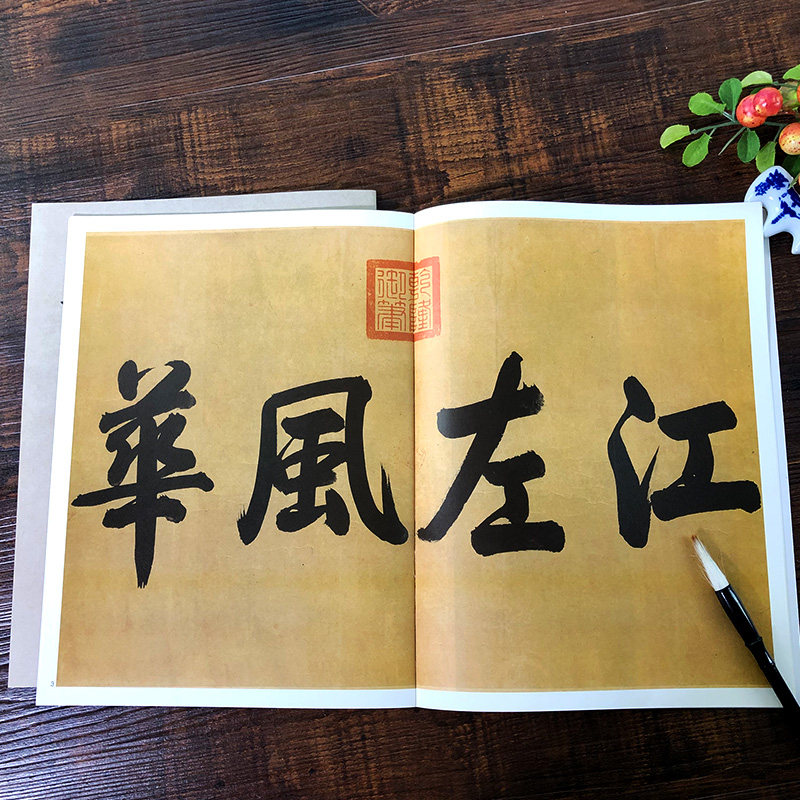 江左風華
乾隆御筆
3